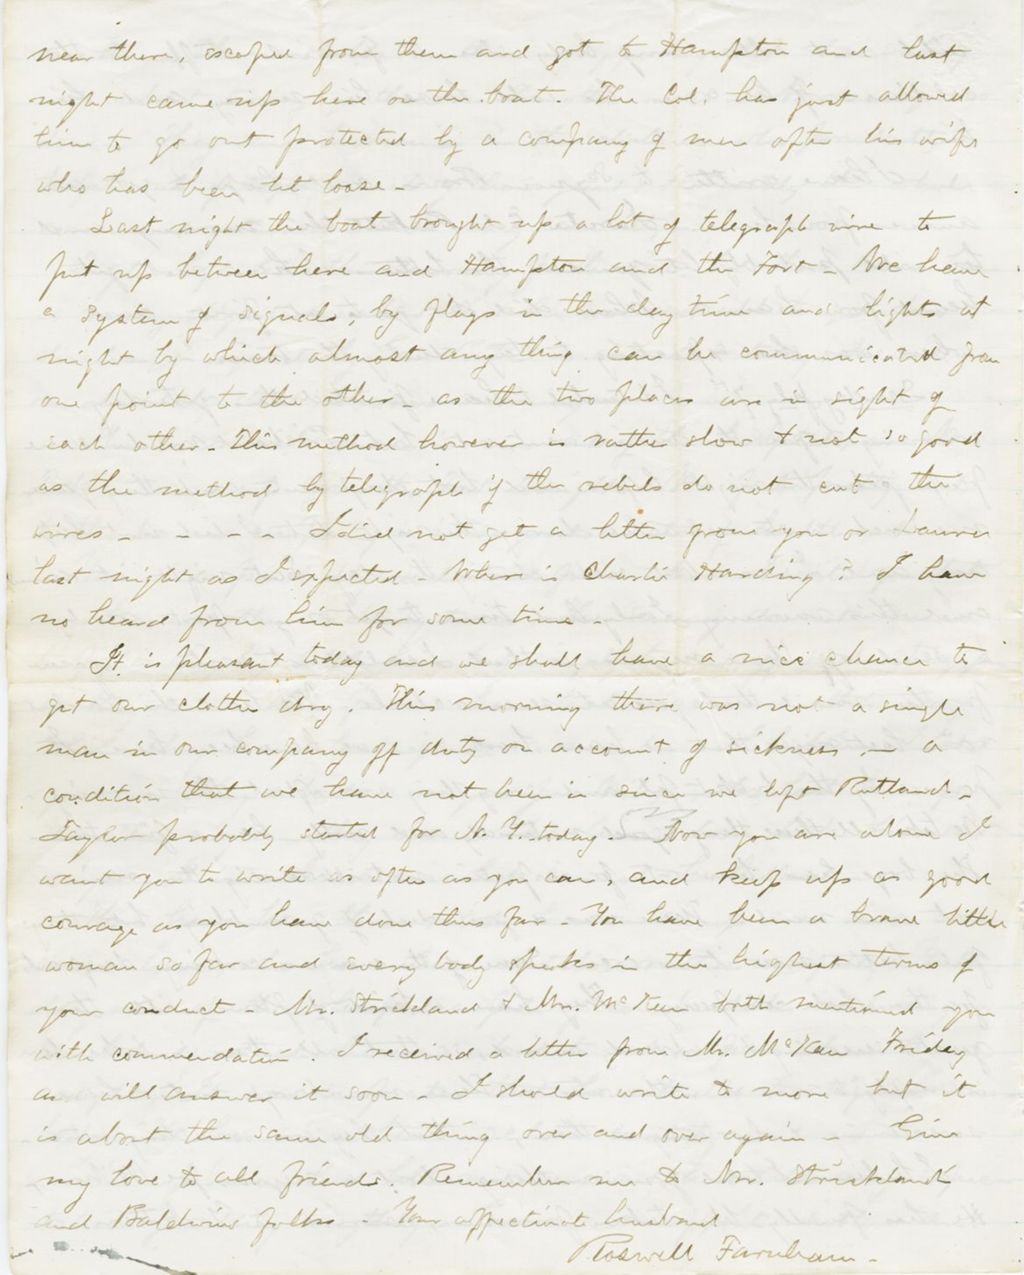 near there, escaped from them and got to Hampton and last
night came up here on the boat. The Col. has just allowed
him to go out protected by a company of men after his wife
who has been let loose -
Last night the boat brought up a lot of telegraph wire to
put up between here and Hampton and the Fort - We have
a system of signals, by flags in the day time and lights at
night by which almost any thing can be communicated from
one point to the other - as the two places are in sight of
each other - This method however is rather slow & not so good
as the method by telegraph if the rebels do not cut the
wires - - - - I did not get a letter from you or Laura
last night as I expected - Where is Charlie Harding? I have
no heard from him for some time -
It is pleasant today and we shall have a nice chance to
get our clothes dry. This morning there was not a single
man in our company off duty on account of sickness - a
condition that we have not been in since we left Rutland -
Taylor probably started for N. Y. today. Now you are alone I
want you to write as often as you can, and keep up as good
courage as you have done thus far - You have been a brave little
woman so far and every body speaks in the highest terms of
your conduct - Mr. Strickland & Mr. McKeen both mentioned you
with commendation. I received a letter from Mr. McKeen Friday
an will answer it soon - I should write to more but it
is about the same old thing over and over again - Give
my love to all friends. Remember me to Mr. Strickland
and Baldwin folks - Your affectionate husband
Roswell Farnham -